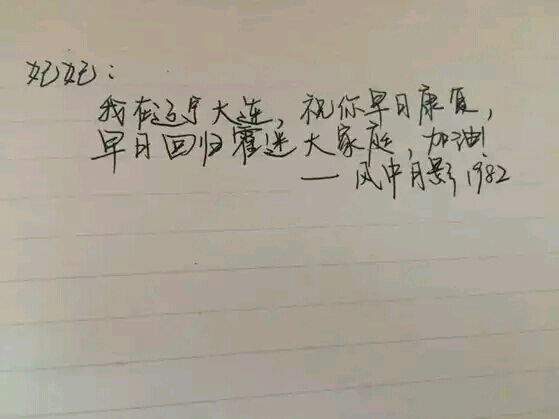 妃妃：
我在辽宁大连，祝你早日康复，
早日回归霍迷大家庭，加油！
— 风中月影1982